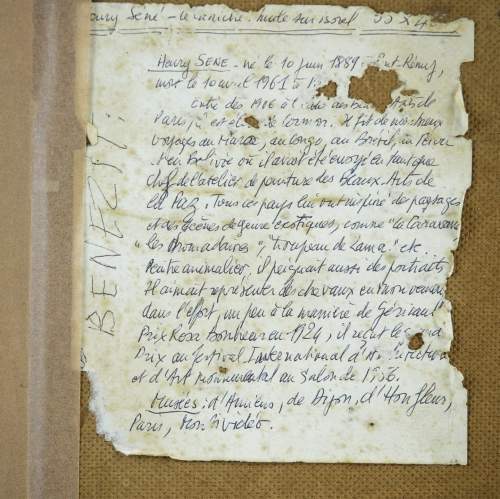 Henry Sené - le carrier. huile sur isorel 33 x 4
BENEZIT:
Henry SENE - né le 10 juin 1889 à St-Rémy,
mort le 10 avril 1961 à
Entré dès 1906 à l' des Beaux Arts de
Paris, il est élève de Cormon. Il fit de nombreux
voyages au Maroc, au Congo, au Brésil, au Pérou
et en Bolivie où il avait été envoyé en tant que
Chef de l'atelier de peinture des Beaux-Arts de
La Paz. Tous ces pays lui ont inspiré des paysages
et des scènes de genre exotiques, comme "la Caravane
"les Dromadaires", "Troupeau de Lama" etc
Peintre animalier, il peignait aussi des portraits
Il aimait représenter des chevaux en mouvement
dans l'effort, un peu à la manière de Géricault
Prix Rosa Bonheur en 1924, il reçut le Grand
Prix au festival International d'
et d'Art monumental au Salon de 1956.
Musées: d'Amiens, de Dijon, d'Honfleur,
Paris, Montévidéo.